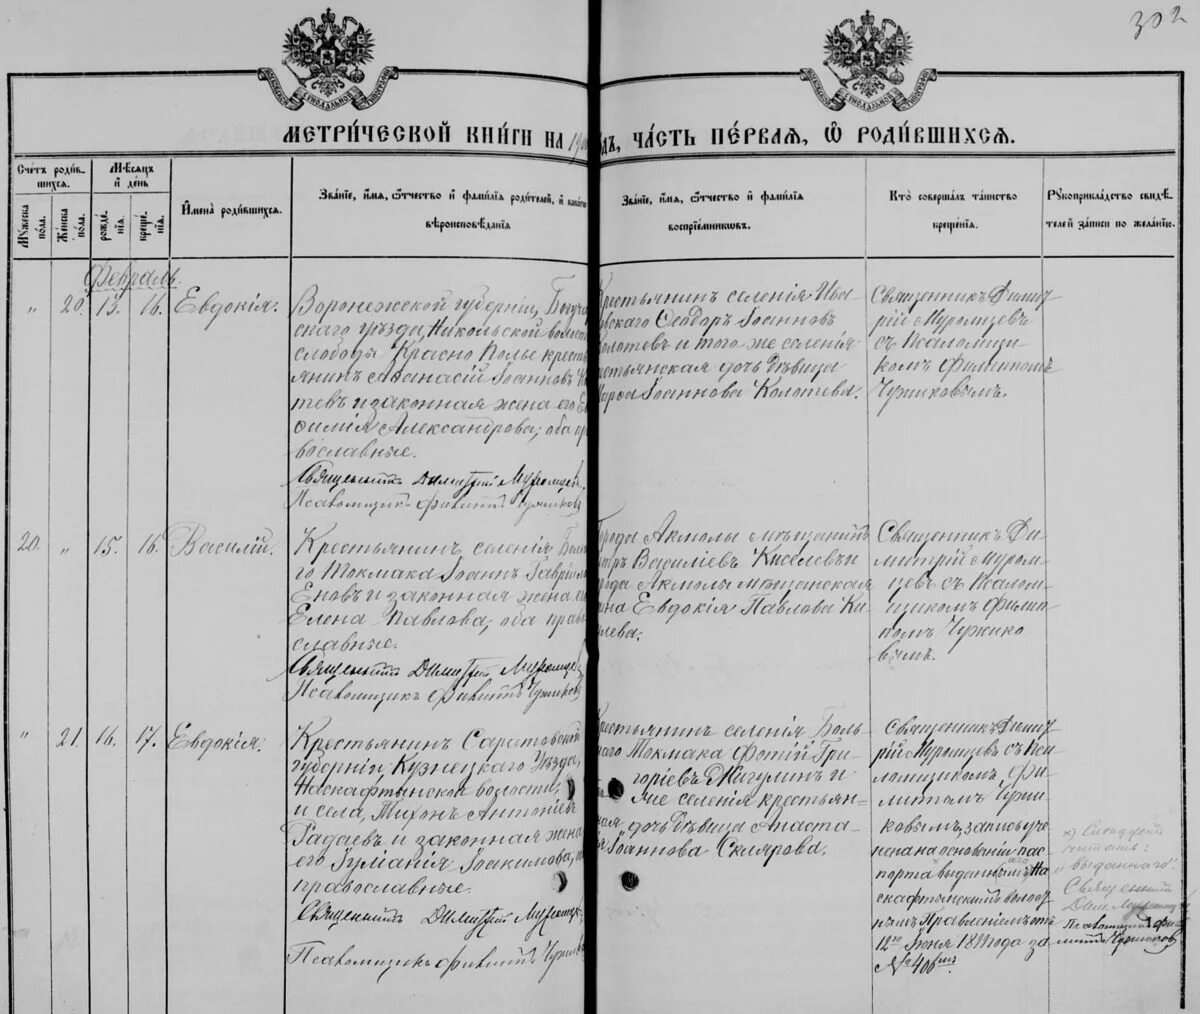 302
МЕТРИ́ЧЕСКОЙ КНИ́ГИ НА 19
ЧА́СТЬ ПЕ́РВАЯ, Ѡ РОДИ́ВШИХСЯ.
Счетъ роди́в-
шихся.
Мужеска
по́ла.
Же́нска
по́ла.
Мѣсяцъ
и де́нь
рожде́-
нія.
креще́-
нія.
Имена̀ роди́вшихся.
Зва́ніе, и́мя, ѻ́тчество и фами́лія роди́телей, и
вѣроисповѣ́данія
Зва́ніе, и́мя, ѻ́тчество и фами́лія
воспрiе́мниковъ.
Кто̀ соверша́лъ та́инство
креще́нія.
Рукоприкла́дство свидѣ́-
телей за́писи по жела́нію.
Февраль.
"
20.
15.
16.
Евдокія.
Воронежской губерніи, Богуча
скаго уѣзда, Никольской волост
слободы Красно Полье кресть
янинъ Аѳанасій Іоанновъ Ко
тевъ и законная жена его Ев
фимія Александрова; оба пр
вославные.
Священникъ Димитрій Муромцевъ.
Псаломщикъ Филиппъ Чужиковъ
крестьянинъ селенія Ива
овскаго Ѳеодоръ Іоанновъ
Колотевъ и того же селенія
крестьянская дочь дѣвица
Іоаннова Колотева.
Священникъ Димит-
рій Муромцевъ
съ Псаломщи-
комъ Филиппомъ
Чужиковымъ.
20.
"
15.
16.
Василій.
Крестьянинъ селенія Боль
го Токмака Іоаннъ Гавріило
Еновъ и законная жена его
Елена Павлова, оба право
славные.
Священникъ Димитрій Муромцевъ
Псаломщикъ Филиппъ Чужиковъ
Города Акмолы мѣщанинъ
Петръ Василіевъ Киселевъ и
города Акмолы мѣщанская
жена Евдокія Павлова Ки-
селева.
Священникъ Ди-
митрій Муром-
цевъ съ Псалом-
щикомъ Филип-
помъ Чужико-
вымъ.
"
21.
16.
17.
Евдокія.
Крестьянинъ Саратовской
губерніи, Кузнецкаго Уѣзда,
Наскафтымской волости,
и села, Тихонъ Антоніевъ
Радаевъ и законная жена
его Іуліанія Іоакимова,
православные.
Священникъ Димитрій Муромцевъ
Псаломщикъ Филиппъ Чужиковъ
Крестьянинъ селенія Боль-
шаго Токмака Фотій Гри-
горіевъ Мигулинъ и
же селенія крестьян-
ская дочь дѣвица Анаста-
Іоаннова Склярова.
Священникъ Димит-
рій Муромцевъ съ Пса-
ломщикомъ Фи-
липпомъ Чужи-
ковымъ, запись учи-
нена на основаніи пас-
порта выданнымъ На-
скафтымскимъ волост-
нымъ Правленіемъ отъ
12го Іюня 1899 года за
№ 406мъ
х) Слѣдуетъ
читать:
"выданнаго".
Священникъ
Дим. Муромцевъ
Псаломщикъ Фи-
липпъ Чужиковъ